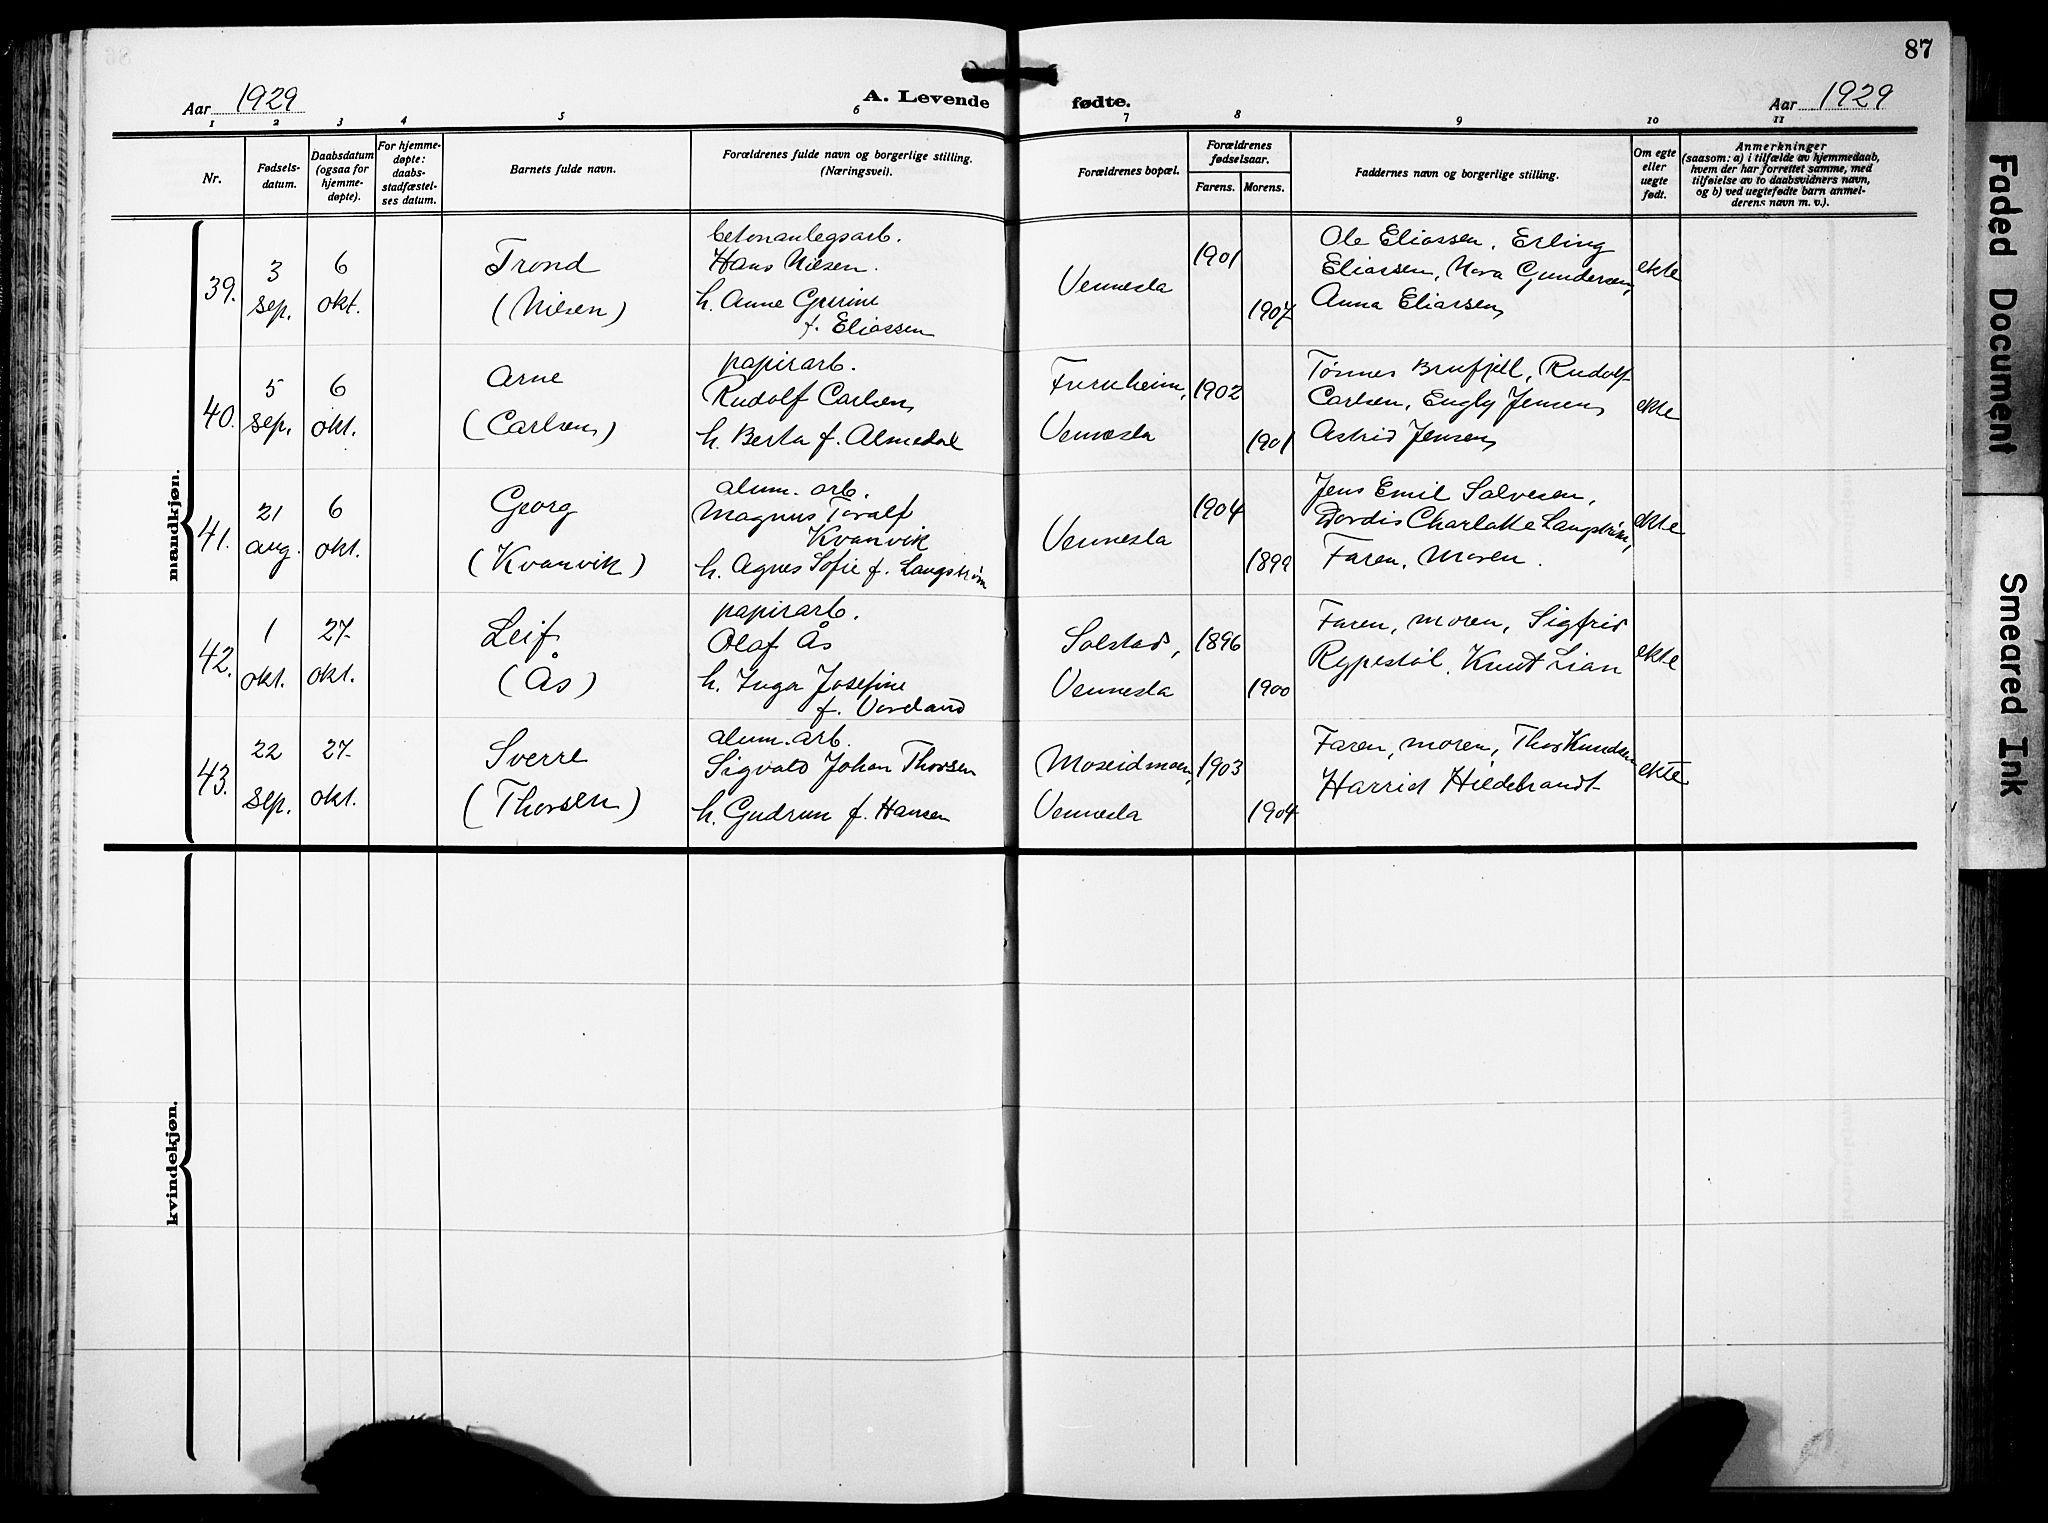 87
Aar 1929
A. Levende fødte.
Aar 1929
1 2 3 4 5 6 7 8 9 10 11
Nr.
Fødsels-
datum.
Daabsdatum
(ogsaa for
hjemme-
døpte).
For hjemme-
døpte:
daabs-
stadfæstel-
ses datum.
Barnets fulde navn.
Forældrenes fulde navn og borgerlige stilling.
(Næringsvei).
Forældrenes bopæl.
Forældrenes
fødselsaar.
Farens. Morens.
Faddernes navn og borgerlige stilling.
Om egte
eller
uegte
født.
Anmerkninger
(saasom: a) i tilfælde av hjemmedaab,
hvem der har forrettet samme, med
tilføielse av to daabsvidners navn,
og b) ved uegtefødte barn anmel-
derens navn m. v.).
mandkjøn.
39.
3
sep.
6
okt.
Trond
(Nilsen)
betonanlegsarb.
Hans Nilsen.
h. Anne
f. Eliassen
Vennesla
1901
1907
Ole Eliassen, Erling
Eliassen, Nora Gundersen,
Anna Eliassen
ekte
40.
5
sep.
6
okt.
Arne
(Carlsen)
papirarb.
Rudolf Carlsen
h. Berta f. Almedal
Furuheim,
Vennesla
1902
1901
Tønnes Brufjell, Rudolf
Carlsen, Engly Jensen,
Astrid Jensen
ekte
41.
21
aug.
6
okt.
Georg
(Kvanvik)
alum. arb.
Magnus Toralf
Kvanvik
h. Agnes Sofie f. Langstrøm
Vennesla
1904
1899
Jens Emil Salvesen,
Dordis Charlotte Langstrøm,
Faren, Moren.
ekte
42.
1
okt.
27
okt.
Leif
(Ås)
papirarb.
Olaf Ås
h. Inga Josefine
f. Vordand
Solstad,
Vennesla
1896
1900
Faren, moren, Sigfrid
Rypestøl, Knut Lian
ekte
43.
22
sep.
27
okt.
Sverre
(Thorsen)
alum. arb.
Sigvald Johan Thorsen
h. Gudrun f. Hansen
Moseidmoen,
Vennesla
1903
1904
Faren, moren, Thor Knudsen
Harrid Hildebrandt
ekte
kvindekjøn.
Faded Document
Smeared Ink